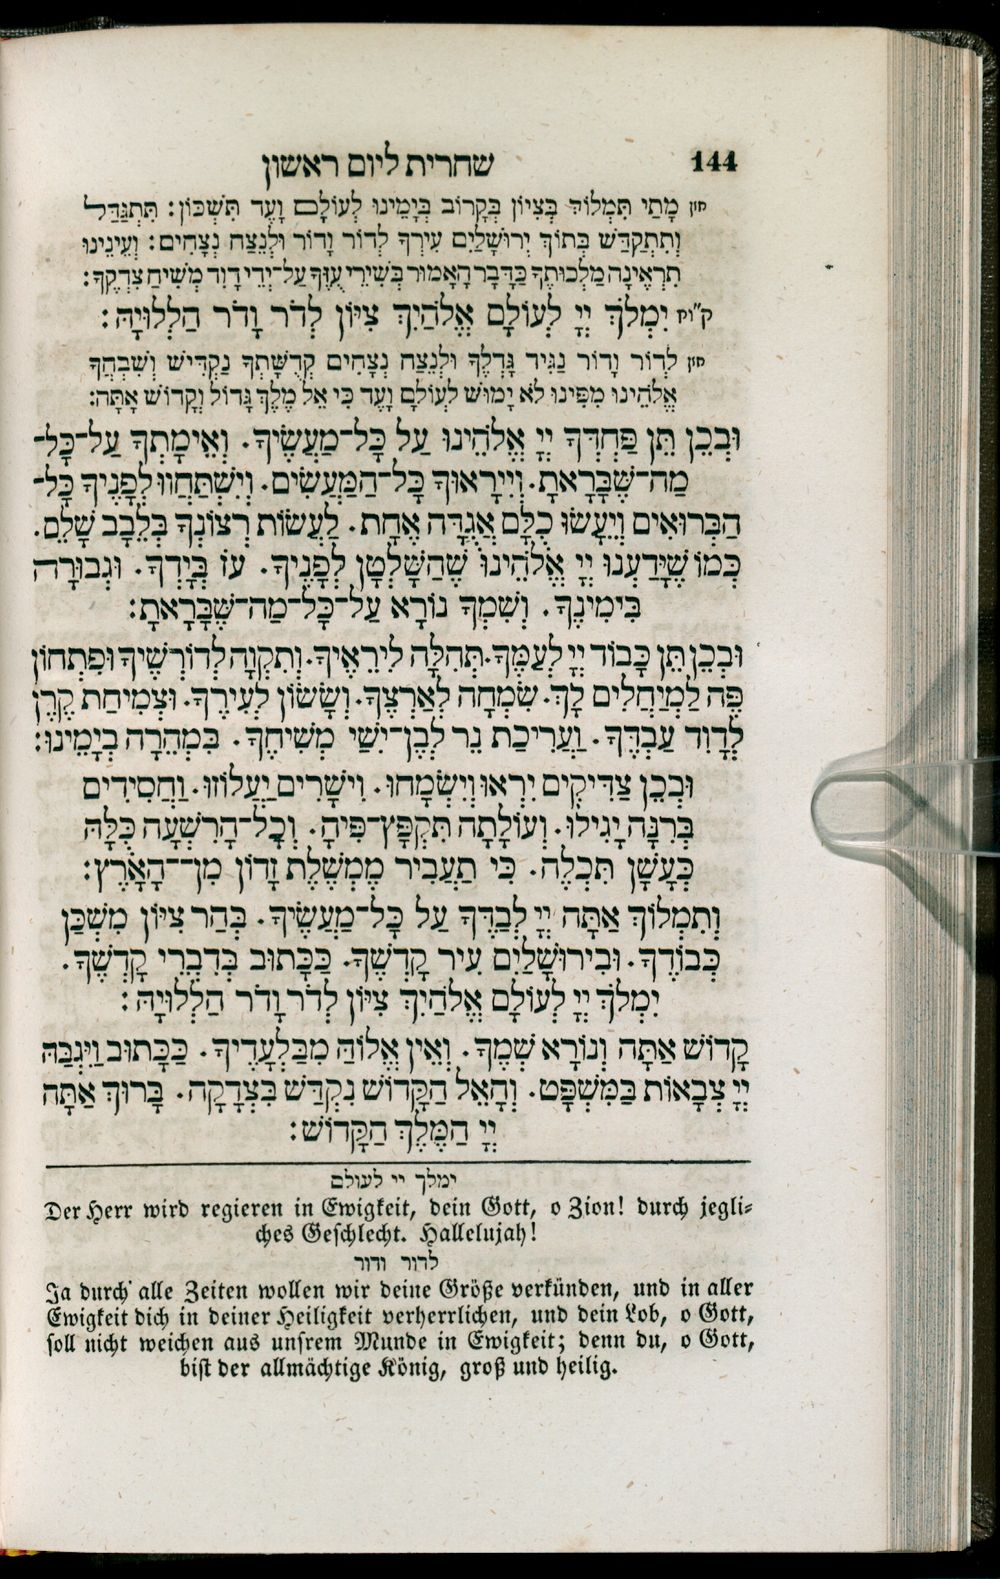 144 שחרית ליום ראשון
חזן מָתַי תִּמְלוֹךְ בְּצִיּוֹן בְּקָרוֹב בְּיָמֵינוּ לְעוֹלָם וָעֶד תִּשְׁכּוֹן: תִּתְגַּדַּל
וְתִתְקַדַּשׁ בְּתוֹךְ יְרוּשָׁלַיִם עִירְךָ לְדוֹר וָדוֹר וּלְנֵצַח נְצָחִים: וְעֵינֵינוּ
תִרְאֶינָה מַלְכוּתֶךָ כַּדָּבָר הָאָמוּר בְּשִׁירֵי עֻזֶּךָ עַל־יְדֵי דָוִד מְשִׁיחַ צִדְקֶךָ:
קו״ח יִמְלֹךְ יְיָ לְעוֹלָם אֱלֹהַיִךְ צִיּוֹן לְדֹר וָדֹר הַלְלוּיָהּ:
חזן לְדוֹר וָדוֹר נַגִּיד גָּדְלֶךָ וּלְנֵצַח נְצָחִים קְדֻשָּׁתְךָ נַקְדִּישׁ וְשִׁבְחֲךָ
אֱלֹהֵינוּ מִפִּינוּ לֹא יָמוּשׁ לְעוֹלָם וָעֶד כִּי אֵל מֶלֶךְ גָּדוֹל וְקָדוֹשׁ אָתָּה:
וּבְכֵן תֵּן פַּחְדְּךָ יְיָ אֱלֹהֵינוּ עַל כָּל־מַעֲשֶׂיךָ. וְאֵימָתְךָ עַל־כָּל־
מַה־שֶּׁבָּרָאתָ. וְיִירָאוּךָ כָּל־הַמַּעֲשִׂים. וְיִשְׁתַּחֲווּ לְפָנֶיךָ כָּל־
הַבְּרוּאִים וְיֵעָשׂוּ כֻלָּם אֲגֻדָּה אֶחָת. לַעֲשׂוֹת רְצוֹנְךָ בְּלֵבָב שָׁלֵם.
כְּמוֹ שֶׁיָּדַעְנוּ יְיָ אֱלֹהֵינוּ שֶׁהַשָּׁלְטָן לְפָנֶיךָ. עֹז בְּיָדְךָ. וּגְבוּרָה
בִּימִינֶךָ. וְשִׁמְךָ נוֹרָא עַל־כָּל־מַה־שֶּׁבָּרָאתָ:
וּבְכֵן תֵּן כָּבוֹד יְיָ לְעַמֶּךָ. תְּהִלָּה לִירֵאֶיךָ. וְתִקְוָה לְדוֹרְשֶׁיךָ וּפִתְחוֹן
פֶּה לַמְיַחֲלִים לָךְ. שִׂמְחָה לְאַרְצֶךָ. וְשָׂשׂוֹן לְעִירֶךָ. וּצְמִיחַת קֶרֶן
לְדָוִד עַבְדֶּךָ. וַעֲרִיכַת נֵר לְבֶן־יִשַׁי מְשִׁיחֶךָ. בִּמְהֵרָה בְיָמֵינוּ:
וּבְכֵן צַדִּיקִים יִרְאוּ וְיִשְׂמָחוּ. וִישָׁרִים יַעֲלוֹזוּ. וַחֲסִידִים
בְּרִנָּה יָגִילוּ. וְעוֹלָתָה תִּקְפָּץ־פִּיהָ. וְכָל־הָרִשְׁעָה כֻּלָּהּ
כְּעָשָׁן תִּכְלֶה. כִּי תַעֲבִיר מֶמְשֶׁלֶת זָדוֹן מִן־־הָאָרֶץ:
וְתִמְלוֹךְ אַתָּה יְיָ לְבַדֶּךָ עַל כָּל־מַעֲשֶׂיךָ. בְּהַר צִיּוֹן מִשְׁכַּן
כְּבוֹדֶךָ. וּבִירוּשָׁלַיִם עִיר קָדְשֶׁךָ. כַּכָּתוּב בְּדִבְרֵי קָדְשֶׁךָ.
יִמְלֹךְ יְיָ לְעוֹלָם אֱלֹהַיִךְ צִיּוֹן לְדֹר וָדֹר הַלְלוּיָהּ:
קָדוֹשׁ אַתָּה וְנוֹרָא שְׁמֶךָ. וְאֵין אֱלוֹהַּ מִבַּלְעָדֶיךָ. כַּכָּתוּב וַיִּגְבַּהּ
יְיָ צְבָאוֹת בַּמִּשְׁפָּט. וְהָאֵל הַקָּדוֹשׁ נִקְדַּשׁ בִּצְדָקָה. בָּרוּךְ אַתָּה
יְיָ הַמֶּלֶךְ הַקָּדוֹשׁ:
ימלך יי לעולם
Der Herr wird regieren in Ewigkeit, dein Gott, o Zion! durch jegli-
ches Geschlecht. Hallelujah!
לדור ודור
Ja durch alle Zeiten wollen wir deine Größe verkünden, und in aller
Ewigkeit dich in deiner Heiligkeit verherrlichen, und dein Lob, o Gott,
soll nicht weichen aus unsrem Munde in Ewigkeit; denn du, o Gott,
bist der allmächtige König, groß und heilig.